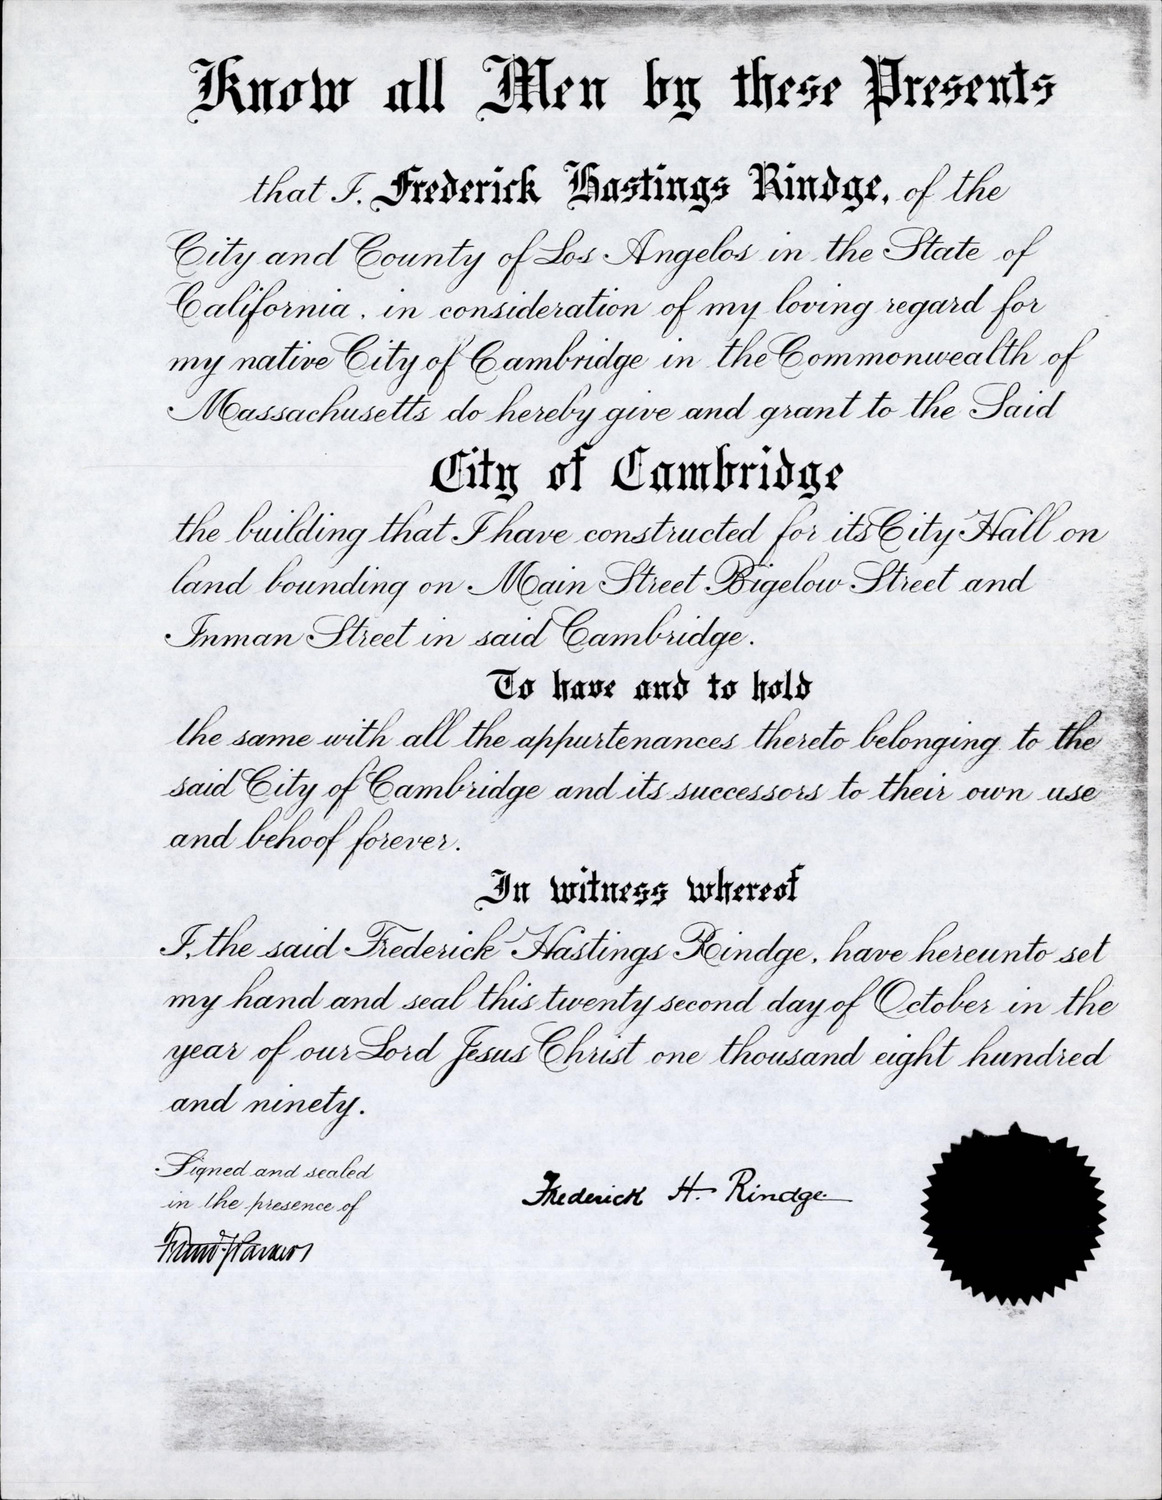 Know all Men by these Presents
that I, Frederick Hastings Rindge, of the
City and County of Los Angelos in the State of
California, in consideration of my loving regard for
my native City of Cambridge in the Commonwealth of
Massachusetts do hereby give and grant to the Said
City of Cambridge
the building that I have constructed for its City Hall on
land bounding on Main Street Bigelow Street and
Inman Street in said Cambridge.
To have and to hold
the same with all the appurtenances thereto belonging to the
said City of Cambridge and its successors to their own use
and behoof forever.
In witness whereof
I, the said Frederick Hastings Rindge, have hereunto set
my hand and seal this twenty second day of October in the
year of our Lord Jesus Christ one thousand eight hundred
and ninety.
Signed and sealed
in the presence of
Frederick H. Rindge